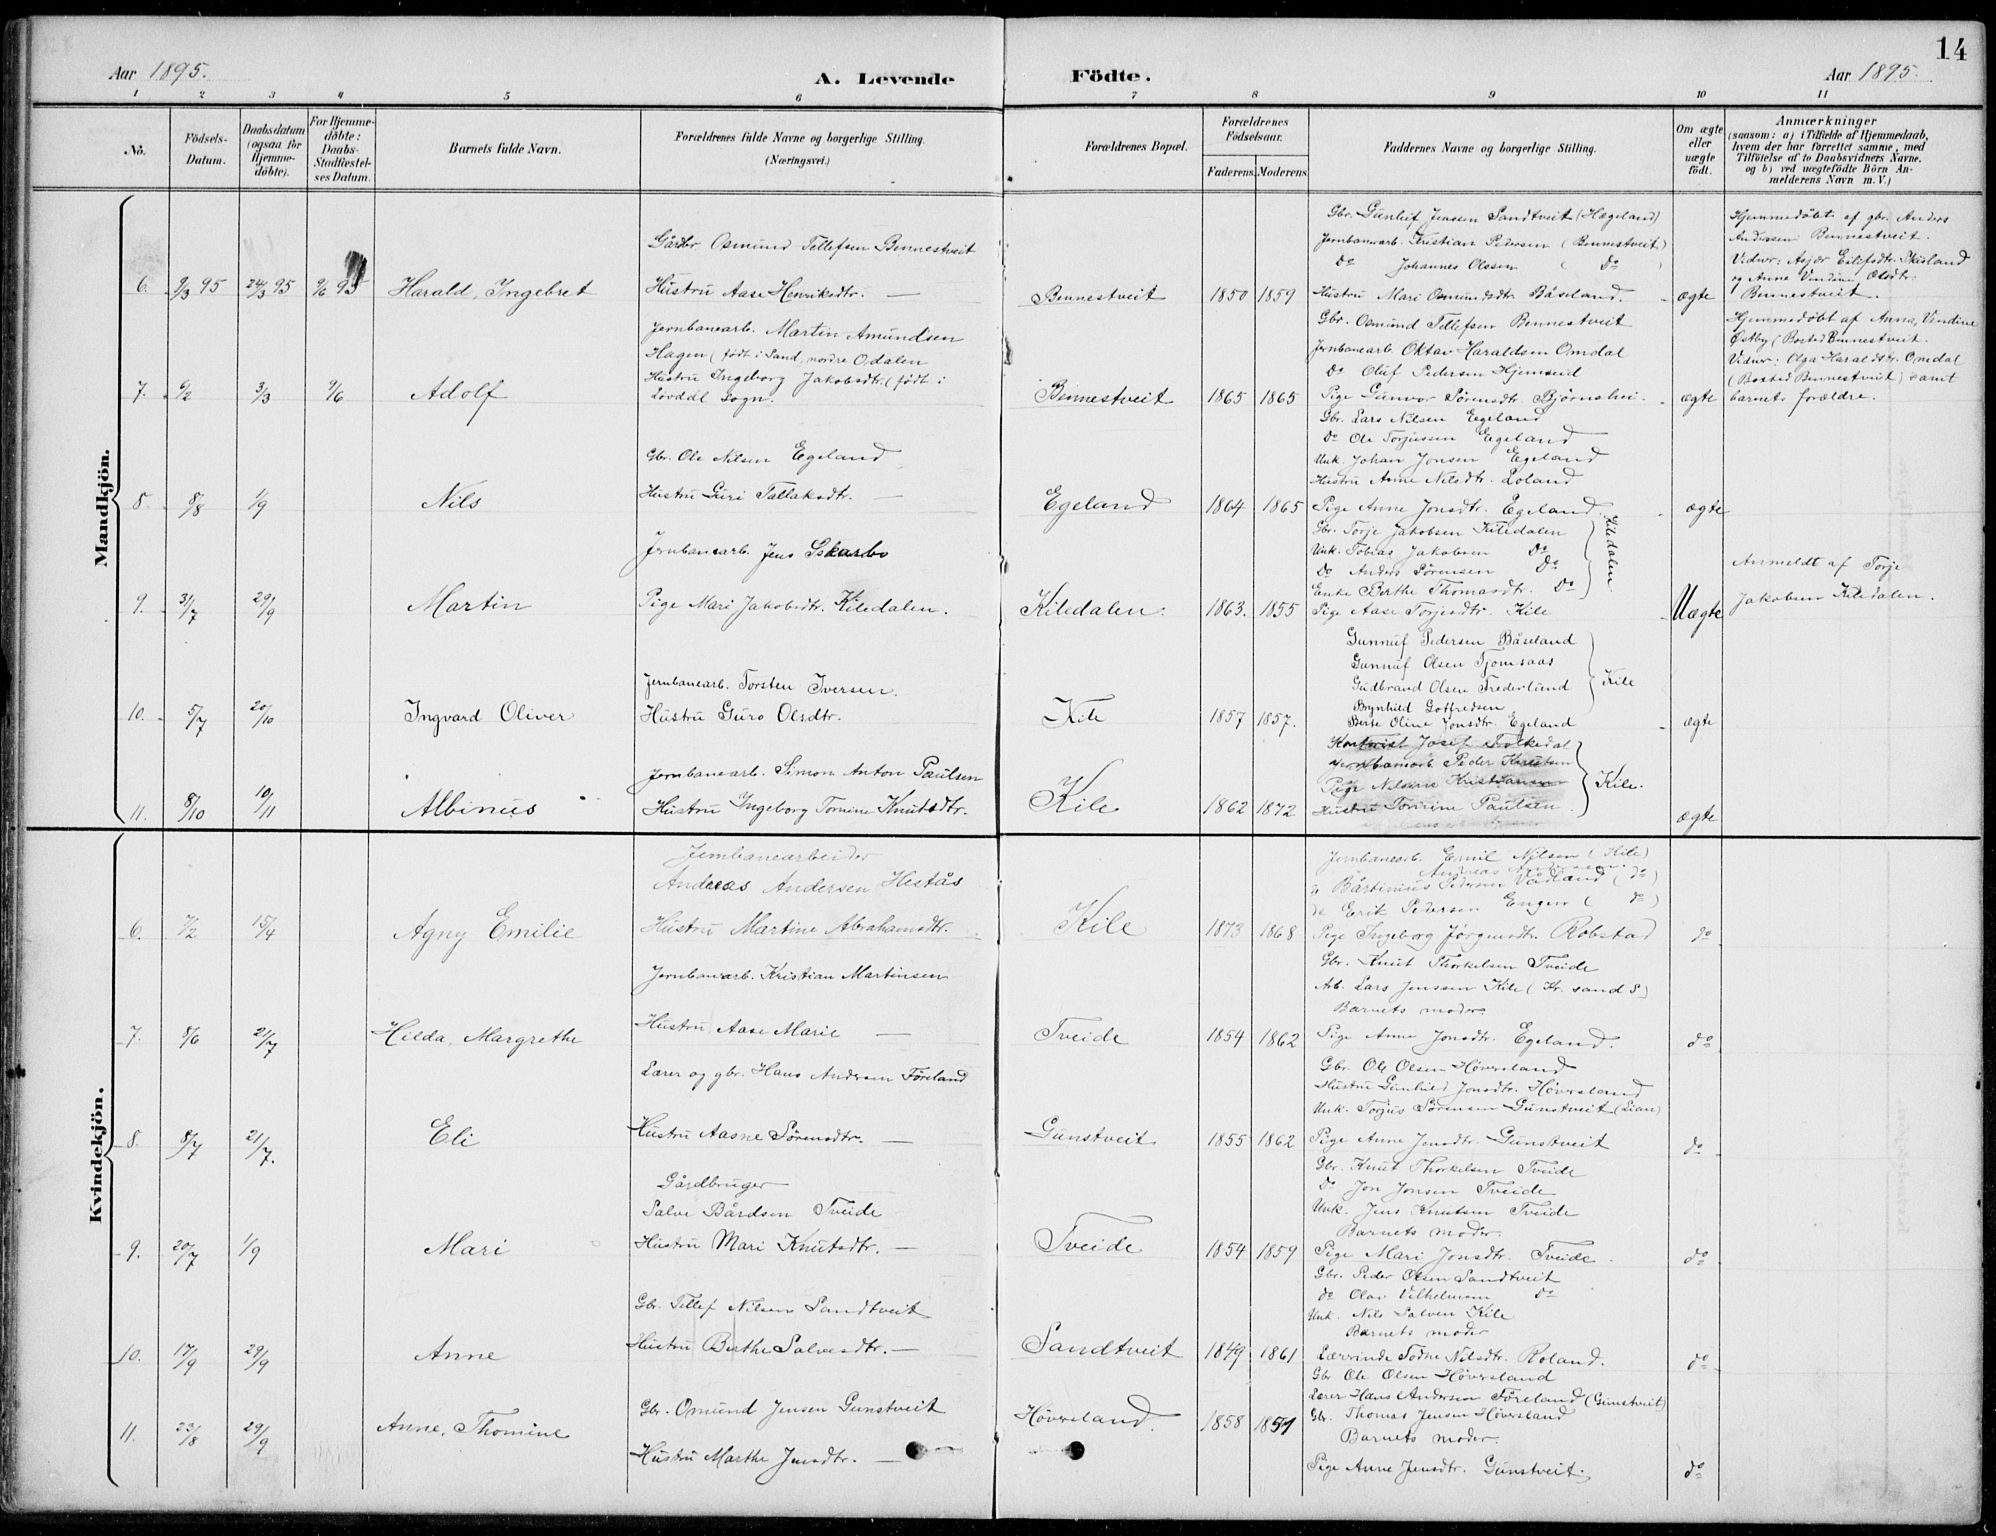 14
Aar 1895. A. Levende Födte. Aar 1895.
1 2 3 4 5 6 7 8 9 10 11
No.
Födsels-Datum.
Daabsdatum (ogsaa for Hjemme-döbte).
For Hjemme-döbte: Daabs-Stadfæstelses Datum.
Barnets fulde Navn.
Forældrenes fulde Navne og borgerlige Stilling. (Næringsvei.)
Forældrenes Bopæl.
Forældrenes Födselsaar.
Faderens. Moderens.
Faddernes Navne og borgerlige Stilling.
Om ægte eller uægte födt.
Anmærkninger
(saasom: a) i Tilfælde af Hjemmedaab, hvem der har forrettet samme, med Tilföielse af to Daabsvidners Navne. og b) ved uægtefödte Börn Anmelderens Navn m. V.)
Mandkjön.
6. 9/3 95 24/3 95 9/6 95 Harald, Ingebret
Gårdbr Osmund Tellefsen Bennestveit
Hustru Aase Henriksdtr. —
Bennestveit 1850 1859
Gbr. Gunleif Jensen Sandtveit (Hægeland)
Jernbanearb. Kristian Pedersen (Bennestveit)
Do Johannes Olssen ( Do )
Hustru Mari Osmundsdtr. Båseland.
ægte
Hjemmedöbt af gbr. Anders
Andersen Bennestveit.
Vidner: Asjær Eilefsdtr. Skisland
og Anne Vendine Olsdtr.
Bennestveit.
7. 9/2 3/3 9/6 Adolf
Jernbanearb. Martin Amundsen
Hagen (født i Sand, nordre Odalen
Hustru Ingeborg Jakobsdtr. (født i
Lörddl Sogn.
Bennestveit 1865 1865
Gbr. Osmund Tellefsen Bennestveit
Jernbanearb Oktav Haraldsen Omdal
Do Oluf Pedersen Hjemseid
Pige Gunvor Sörensdtr. Björnshei.
ægte
Hjemmedöbt af Anna, Vendine
Østby (Bosted Bennestveit.
Vidner: Olga Haraldsdtr. Omdal
(Bosted Bennestveit) samt
barnets forældre.
8. 8/8 1/9 Nils
Gbr. Ole Nilsen Egeland
Hustru Guri Tallaksdtr. —
Egeland 1864 1865
Gbr. Lars Nilsen Egeland
Do Ole Torjussen Egeland
Unk. Johan Jonsen Egeland
Hustru Anne Nilsdtr. Loland
Pige Anne Jonsdtr. Egeland
ægte
9. 31/7 29/9 Martin
Jernbanearb. Jens Sskarbo
Pige Mari Jakobsdtr. Kiledalen.
Kiledalen. 1863. 1855
Gbr. Torje Jakobsen Kiledalen
Unk. Tobias Jakobsen Do
Do Anders Sörensen Do
Enke Berthe Thomasdtr. Do
Kiledalen.
Pige Aase Torjesdtr. Kile
Uægte
Anmeldt af Torje
Jakobsen Kiledalen.
10. 5/7 20/10 Ingvard Oliver
Jernbanearb. Torsten Iversen.
Hustru Guro Olsdtr.
Kile 1857 1857.
Gunnuf Pedersen Båseland
Gunnuf Olsen Tjomsaas
Gudbrand Olsen Frederlund
Brynhild Gotfredsen
Kile
Berte Oline Jonsdtr. Egeland
ægte
11. 8/10 10/11 Albinus
Jernbanearb. Simon Anton Paulsen
Hustru Ingeborg Tomine Knutsdtr.
Kile 1862 1872
Kontorist Josef Folkedal
Jernbanearb Peder
Pige Nilsine Kristiansen
Hustru Tomine Paulsen
Kile.
ægte
Kvindekjön.
6. 7/2 15/4 Agny Emilie
Jernbanearbeider
Andreas Andersen Hestås
Hustru Martine Abrahamsdtr.
Kile 1873 1868
Jernbanearb. Emil Nilsen (Kile)
do Bårtinius Pedersen Vådland (do)
do Erik Pedersen Engen ( do )
Pige Ingeborg Jörgensdtr. Robstad
do
7. 8/6 21/7 Hilda, Margrethe
Jernbanearb. Kristian Martinsen
Hustru, Aase Marie —
Tveide 1854 1862
Gbr. Knut Thorkelsen Tveide
Arb. Lars Jenssen Kile (Kr. sand S)
Barnets moder
Pige Anne Jonsdtr. Egeland.
do
8. 8/7 21/7. Eli
Lærer og gbr. Hans Andersen Föreland
Hustru Aasne Sörensdtr. —
Gunstveit 1855 1862
Gbr. Ole Olsen Höversland
Hustru Gunhild Jonsdtr. Höversland
Unk. Torjus Sörensen Gunstveit (Lian)
Pige Anne Jensdtr. Gunstveit
do
9. 20/7 1/9 Mari
Gårdbruger
Salve Bårdsen Tveide
Hustru Mari Knutsdtr. —
Tveide 1854 1859
Gbr. Knut Thorkelsen Tveide
Do Jon Jonsen Tveide
Unk. Jens Knutsen Tveide
Barnets moder.
Pige Mari Jonsdtr. Tveide.
do
10. 17/9 29/9 Anne
Gbr. Tellef Nilsen Sandtveit
Hustru Berthe Salvesdtr. —
Sandtveit 1849 1861
Gbr. Peder Olsen Sandtveit
do Olav Vilhelmsen do
Unk. Nils Salvesen Kile
Barnets moder
Lærerinde Todne Nilsdtr. Roland.
do
11. 23/8 29/9 Anne, Thomine
Gbr. Omund Jensen Gunstveit
Hustru Marthe Jensdtr. —
Höversland. 1858 1857
Gbr Ole Olsen Höversland
Lærer Hans Andersen Föreland (Gunstveit)
Gbr. Thomas Jensen Höversland
Barnets moder.
Pige Anne Jensdtr. Gunstveit.
do